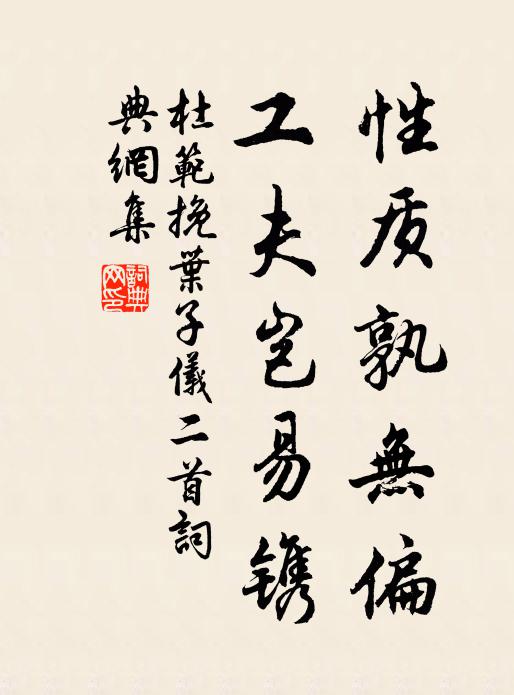 性质孰無偏
工夫岂易镌
杜範挽葉子儀二首詞
典網集
詞典
网印